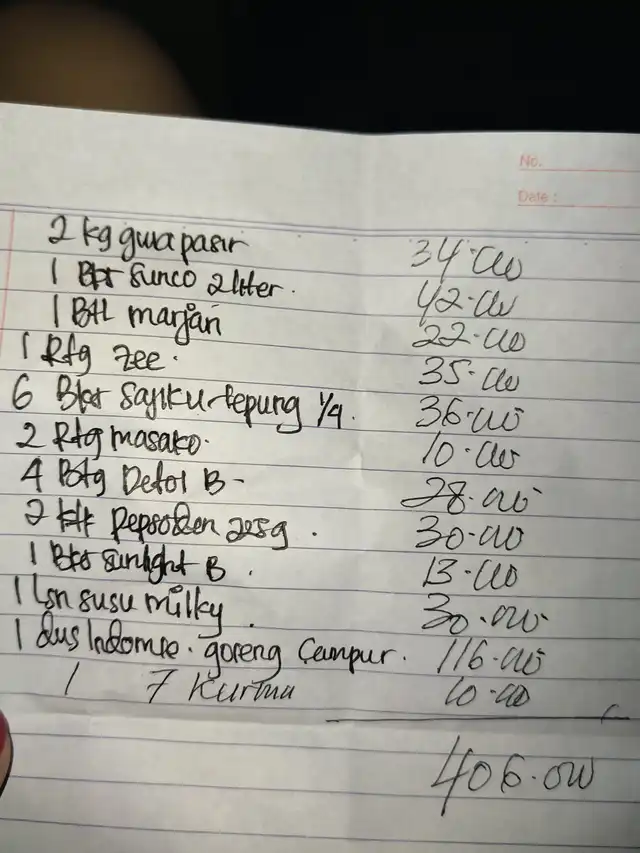 No.
Date :
2 kg gula pasir 34.000
1 Bks sunco 2 liter. 42.000
1 Btl marjan 22.000
1 Rtg zee. 35.000
6 Bks sajiku tepung 1/4. 36.000
2 Rtg masako. 10.000
4 Btg Detol B - 28.000
2 Pepsoden 225g. 30.000
1 Bks sunlight B. 13.000
1 Lsn susu milky. 30.000
1 dus Indomie. goreng Campur. 116.000
1 7 Kurma 10.000
406.000